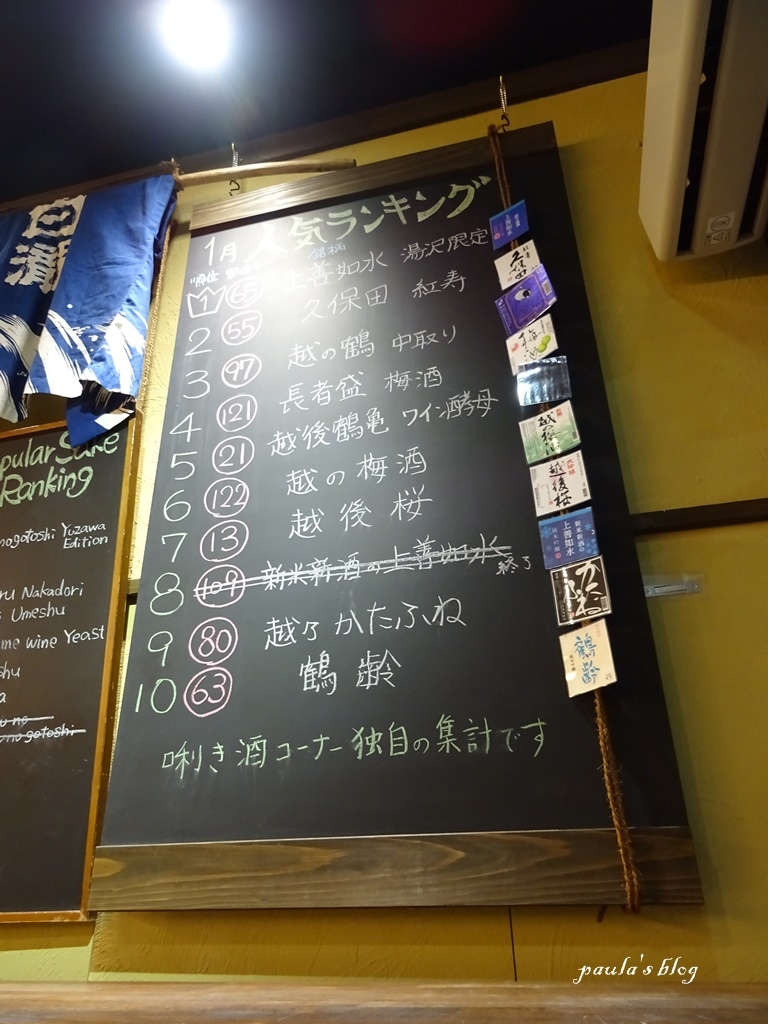 白瀧
1月 人気ランキング
順位 銘柄
1 65 上善如水 湯沢限定
2 55 久保田 紅寿
3 97 越の鶴 中取り
4 121 長者盛 梅酒
5 21 越後鶴亀 ワイン酵母
6 122 越の梅酒
7 13 越後桜
8 109 新米新酒の上善如水 終了
9 80 越乃かたふね
10 63 鶴齢
唎き酒コーナー独自の集計です
pular Sake
Ranking
nogotoshi Yuzawa
Edition
ru Nakadori
Umeshu
me wine Yeast
shu
a
u no
nogotoshi
上善如水
久保田
越の梅酒
越後桜
新米新酒の
上善如水
純米吟醸
かたふね
鶴齢
paula's blog